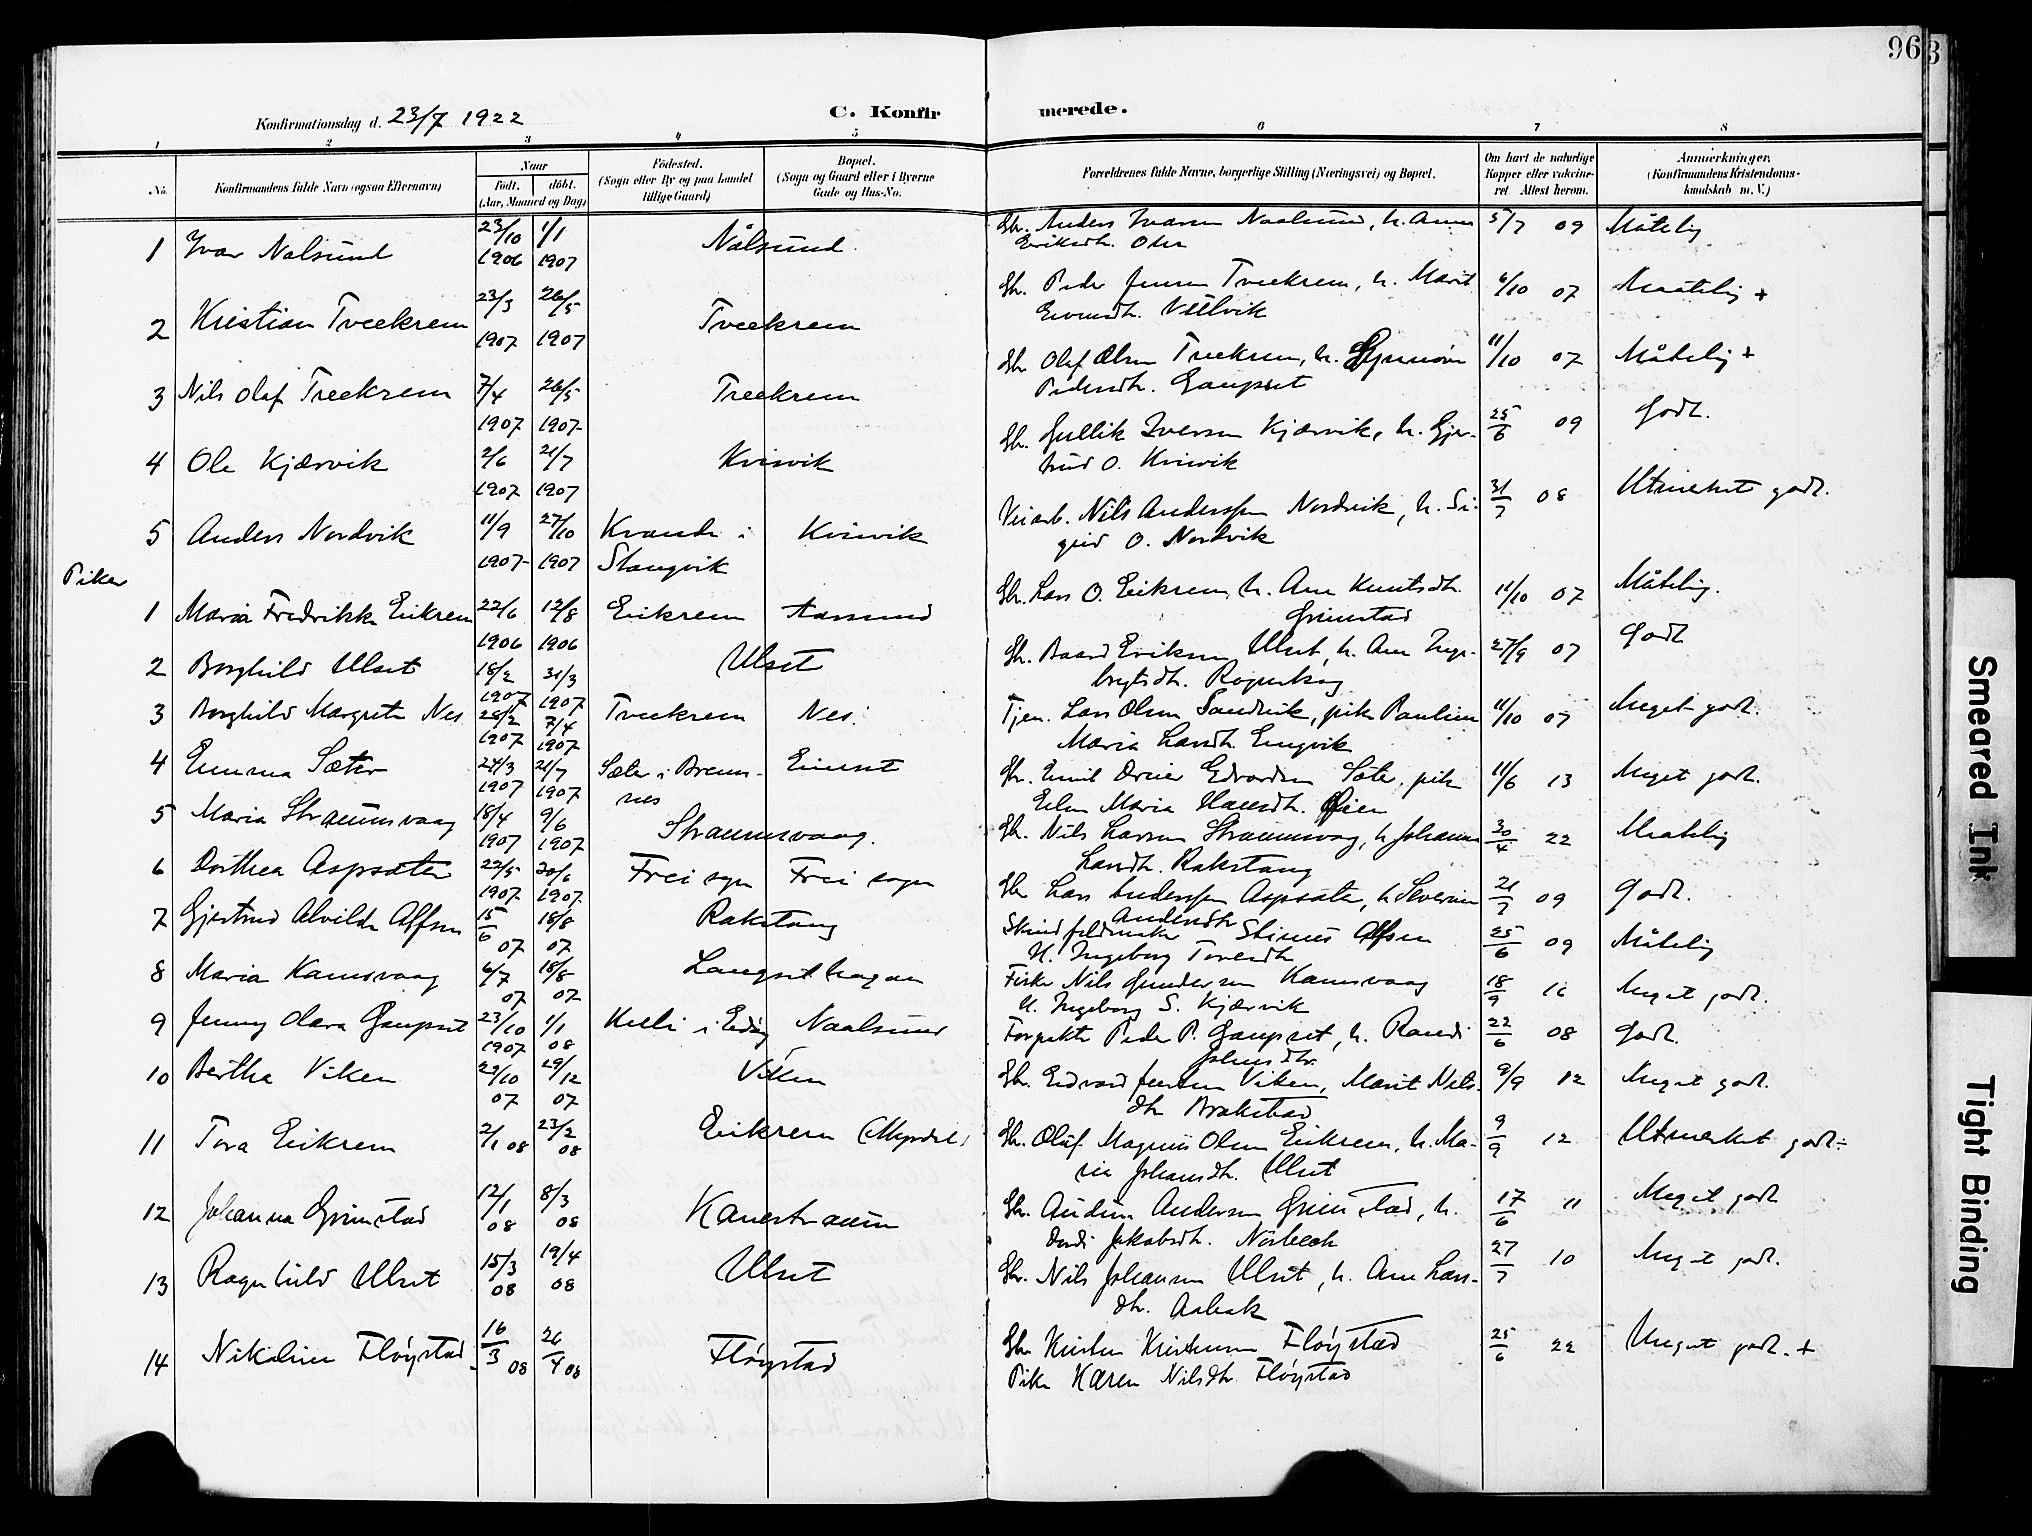 96
3
Konfirmationsdag d. 23/7 1922
C. Konfirmerede.
1 2 3 4 5 6 7 8
No.
Konfirmandens fulde Navn (ogsaa Efternavn)
Naar
født. døbt.
(Aar, Maaned og Dag)
Födested.
(Sogn eller By og paa Landet
tillige Gaard)
Bopæl.
(Sogn og Gaard eller i Byerne
Gade og Hus-No.
Forældrenes fulde Navne, borgerlige Stilling (Næringsvei) og Bopæl.
Om havt de naturlige
Kopper eller vakcine-
ret Attest herom.
Anmærkninger.
(Konfirmandens Kristendoms-
kundskab m. V.)
1 Ivar Nålsund 23/10 1906 1/1 1907 Nålsund Gbr. Anders Ivarsen Naalsund, h. Anne
Eriksdtr. Oter 5/7 09 Måtelig
2 Kristian Tveekrem 23/3 1907 26/5 1907 Tveekrem Gbr. Peder Jensen Tveekrem, h. Marit
Eivindtr. Vullvik 6/10 07 Maatelig +
3 Nils Olaf Tveekrem 7/4 1907 26/5 1907 Tveekrem Gbr. Olaf Olsen Tveekrem, h.
Pedersdtr. Gaupset 11/10 07 Måtelig +
4 Ole Kjærvik 2/6 1907 21/7 1907 Kvisvik Gbr. Gullik Iversen Kjærvik, h. Gjer-
trud O. Kvisvik 25/6 09 Godt.
5 Anders Nordvik 11/9 1907 27/10 1907 Kvande i
Stangvik Kvisvik Veiarb. Nils Anderssen Nordvik, h. Si-
grid O. Nordvik 31/7 08 Utmerket godt.
Piker
1 Maria Fredrikke Eikrem 22/6 1906 12/8 1906 Eikrem Aarsund Gbr. Lars O. Eikrem, h. Ane Knutsdtr.
Grimstad 11/10 07 Måtelig.
2 Borghild Ulset 18/2 1907 31/3 1907 Ulset Gbr. Baard Eriksen Ulset, h. Ane Inge-
brigtsdtr. 27/9 07 Godt
3 Borghild Margrete Nes 28/2 1907 7/4 1907 Tveekrem Nes. Tjen. Lars Olsen Sandvik, pike Pauline
Maria Larsdtr. Engvik 11/10 07 Meget godt.
4 Emma Sæter 24/3 1907 21/7 1907 Sæter i Brems-
nes Einset Gbr. Emil Edvardsen Sæter, pike
Elen Maria Hansdtr. Øien 11/6 13 Meget godt.
5 Maria Straumsvaag 18/4 1907 9/6 1907 Straumsvaag. Gbr. Nils Larsen Straumsvaag, h Johanne
Larsdtr. Rakstang 30/4 22 Maatelig
6 Dorthea Aspsæter 22/5 1907 30/6 1907 Frei sogn Frei sogn Gbr Lars Anderssen Aspsæter, h Severine
Andersdtr 21/7 09 Godt.
7 Gjertrud Alvilde Alfsen 15/6 07 18/8 07 Rakstang Skindfeldmaker Stinus Alfsen
H. Ingeborg Toresdtr 25/6 09 Måtelig
8 Maria Kamsvaag 6/7 07 18/8 07 Langsethagan Fisker Nils Gundersen Kamsvaag
H. Ingeborg S. Kjærvik 18/9 16 Meget godt.
9 Jenny Olara Gaupset 23/10 1907 1/1 08 i Eidøy Naalsund Forpakter Peder P. Gaupset, h. Randi
Johnsdtr. 22/6 08 Godt.
10 Bertha Viken 22/10 07 29/12 07 Viken Gbr. Edvard Jensen Viken, Marit Nils-
dtr Brakstad 9/9 12 Meget godt.
11 Tora Eikrem 2/1 08 23/2 08 Eikrem (Myrdal) Gbr. Oluf Magnus Olsen Eikrem, h. Ma-
rie Johansdtr. Ulset 9/9 12 Utmerket godt ÷
12 Johanna Grimstad 12/1 08 8/3 08 Kanestraum Gbr. Audun Andersen Grimstad, h.
Dordi Jakobsdtr. Nørbech 17/6 11 Meget godt
13 Ragnhild Ulset 15/3 08 19/4 08 Ulset Gbr. Nils Johansen Ulset, h. Ane Lars-
dtr. Aabak 27/7 10 Meget godt.
14 Nikoline Fløystad 16/3 08 26/4 08 Fløystad Gbr Kristen Kristensen Fløystad
Pike Karen Nilsdtr Fløystad 25/6 22 Meget godt. +
Smeared Ink
Tight Binding